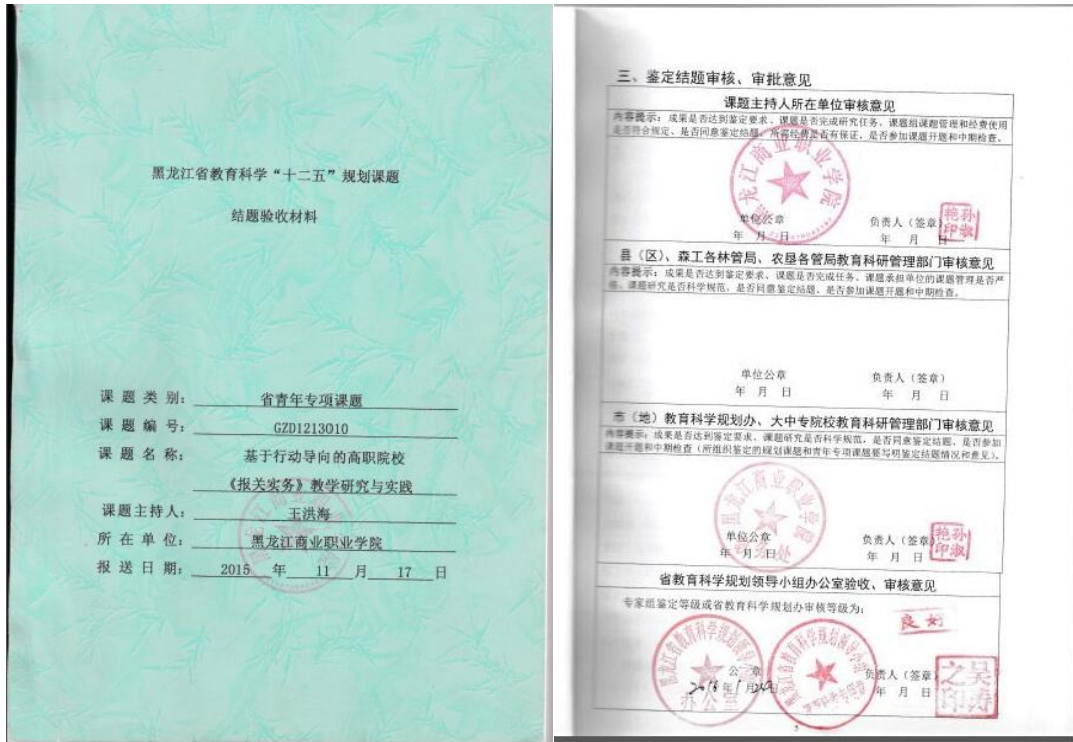 黑龙江省教育科学“十二五”规划课题
结题验收材料
课题类别： 省青年专项课题
课题编号： GZD1213010
课题名称： 基于行动导向的高职院校
《报关实务》教学研究与实践
课题主持人： 王洪海
所在单位： 黑龙江商业职业学院
报送日期： 2015 年 11 月 17 日
三、鉴定结题审核、审批意见
课题主持人所在单位审核意见
内容提示：成果是否达到鉴定要求、课题是否完成研究任务、课题组课题管理和经费使用
是否符合规定、是否同意鉴定结题、所需经费是否有保证，是否参加课题开题和中期检查。
黑龙江商业职业学院
单位公章 负责人（签章）
年 月 日 年 月 日
孙淑艳印
县（区）、森工各林管局、农垦各管局教育科研管理部门审核意见
内容提示：成果是否达到鉴定要求、课题是否完成任务、课题承担单位的课题管理是否严
格、课题研究是否科学规范，是否同意鉴定结题、是否参加课题开题和中期检查。
单位公章 负责人（签章）
年 月 日 年 月 日
市（地）教育科学规划办、大中专院校教育科研管理部门审核意见
内容提示：成果是否达到鉴定要求、课题研究是否科学规范，是否同意鉴定结题、是否参加
课题开题和中期检查（所组织鉴定的规划课题和青年专项课题要写明鉴定结题情况和意见）。
黑龙江商业职业学院
单位公章 负责人（签章）
年 月 日 年 月 日
孙淑艳印
省教育科学规划领导小组办公室验收、审核意见
专家组鉴定等级或省教育科学规划办审核等级为：
良好
黑龙江省教育科学规划领导小组
办公室
公 章 负责人（签章）
2016 年 1 月 日 年 月 日
吴涛之印
5